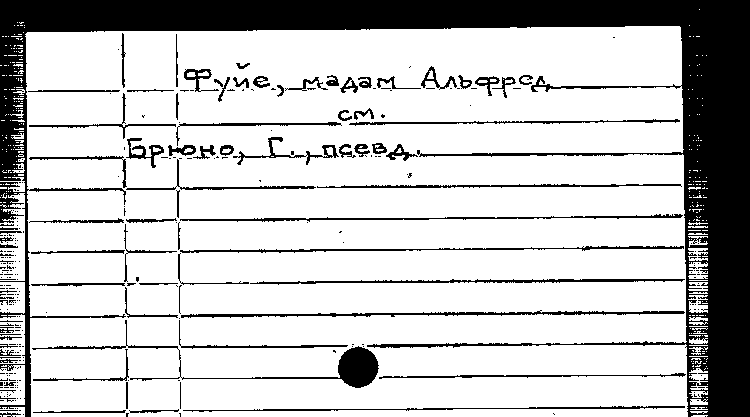 Фуйе, мадам Альфред
см.
Брюно, Г., псевд.